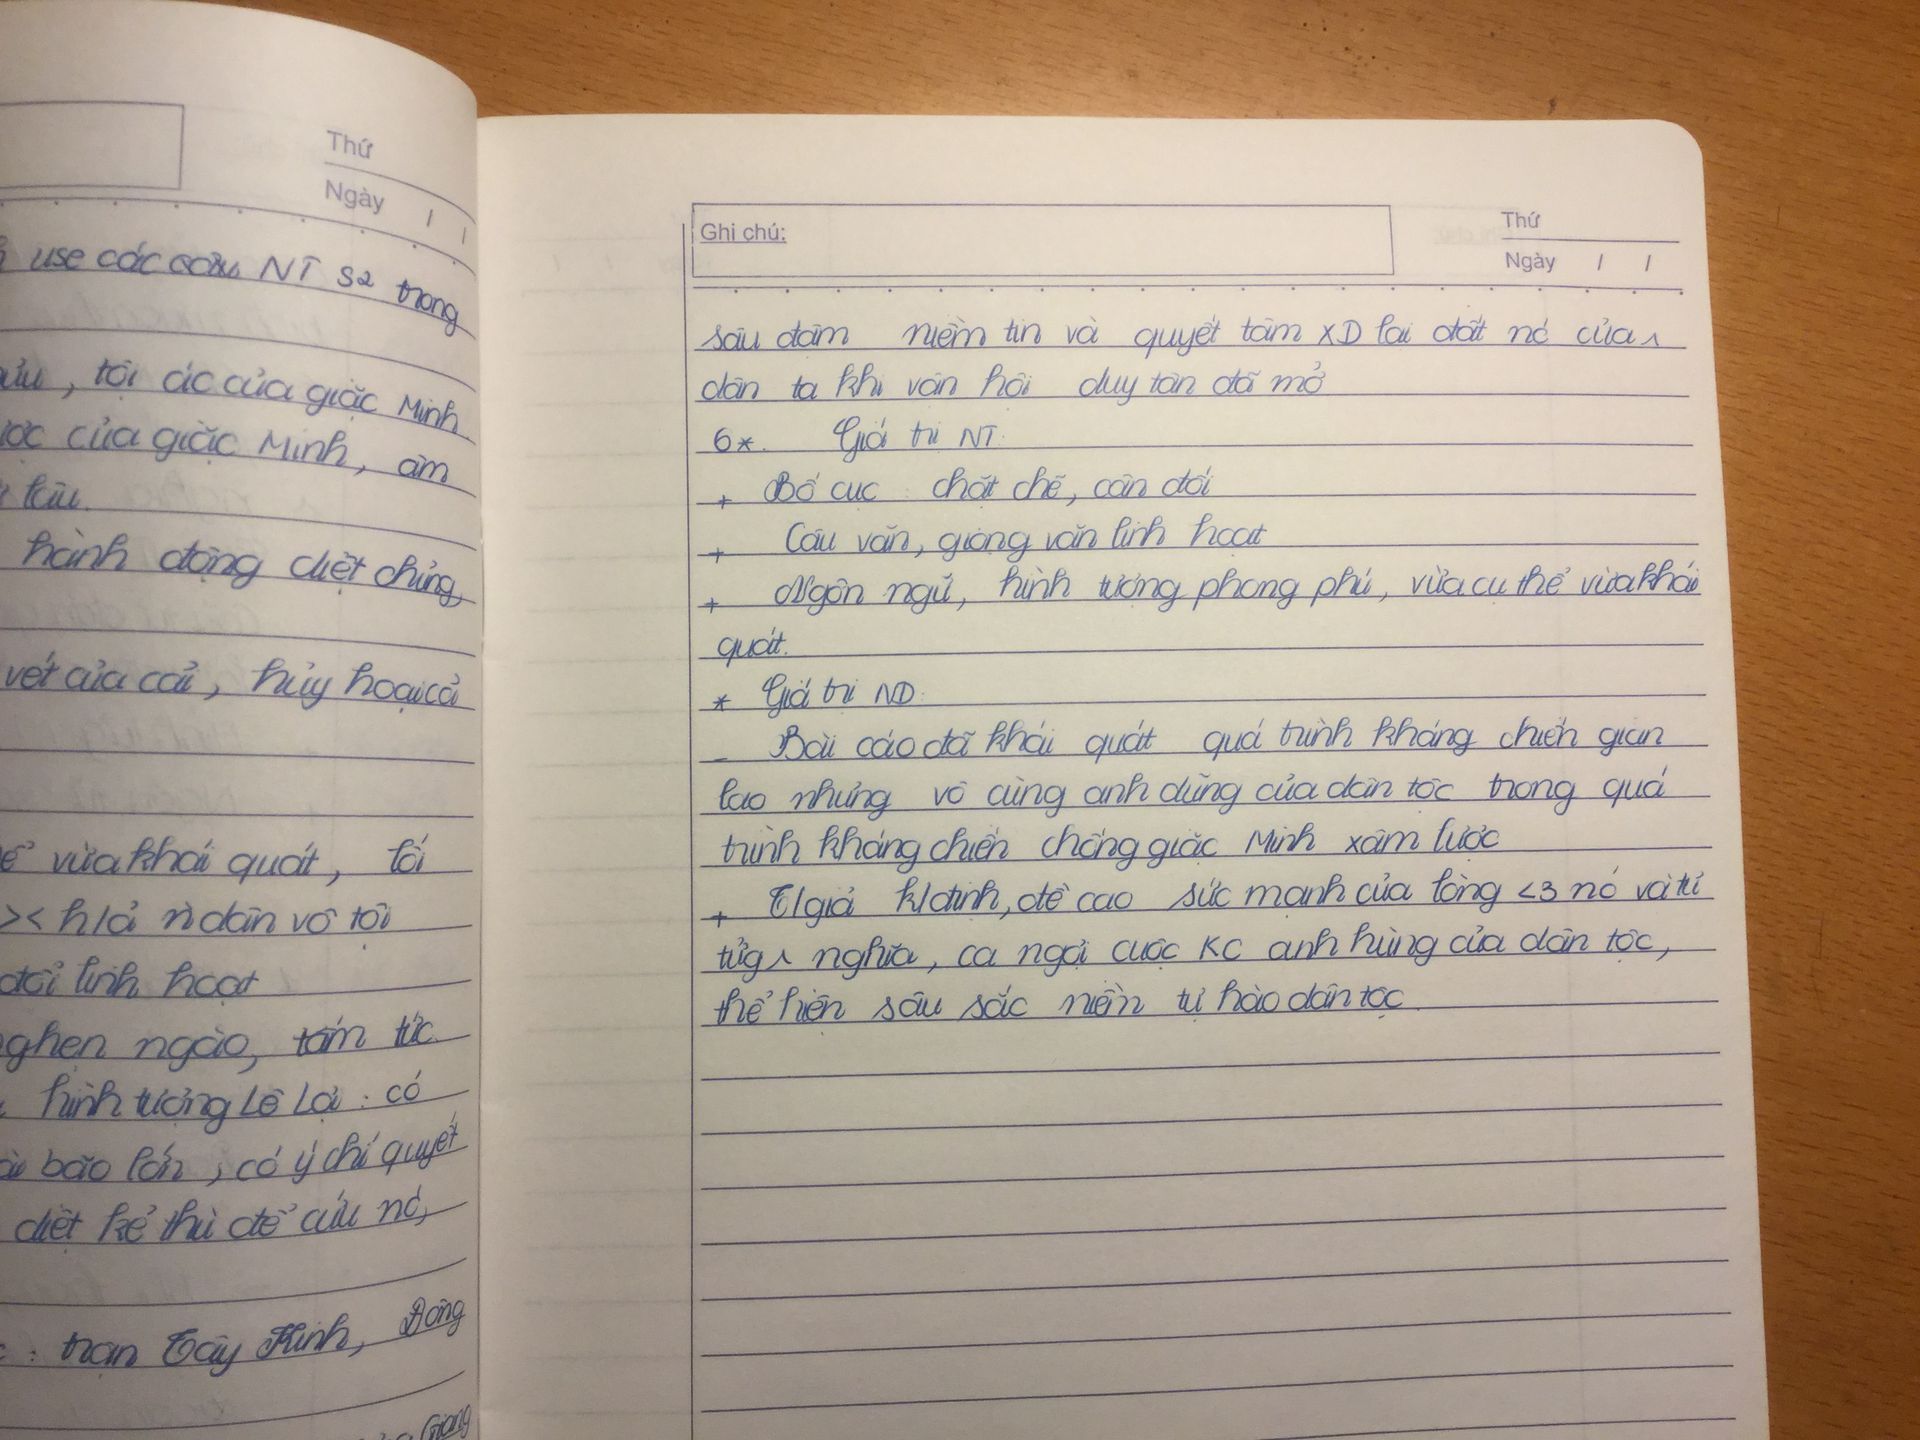 Thứ
Ngày / /
use các câu NT s2 trong
, tội ác của giặc Minh
của giặc Minh, âm
hành động diệt chủng,
vét của cải, hủy hoại cả
vừa khái quát, lối
>< h/ả n dân vô tội
đổi linh hoạt
nghẹn ngào, tấm tức
hình tượng Lê Lợi : có
bão lớn, có ý chí quyết
diệt kẻ thù để cứu nc,
: trận Tây Kinh, Đông
Giang
Ghi chú:
Thứ
Ngày / /
sâu đậm niềm tin và quyết tâm XD lại đất nc của
dân ta khi vận hội duy tân đã mở
6*. Giá trị NT:
+ Bố cục : chặt chẽ, cân đối
+ Câu văn, giọng văn linh hoạt
+ Ngôn ngữ, hình tượng phong phú, vừa cụ thể vừa khái
quát.
* Giá trị ND:
- Bài cáo đã khái quát quá trình kháng chiến gian
lao nhưng vô cùng anh dũng của dân tộc trong quá
trình kháng chiến chống giặc Minh xâm lược
+ T/giả k/định, đề cao sức mạnh của lòng <3 nc và tư
tưởg nghĩa, ca ngợi cuộc KC anh hùng của dân tộc,
thể hiện sâu sắc niềm tự hào dân tộc.